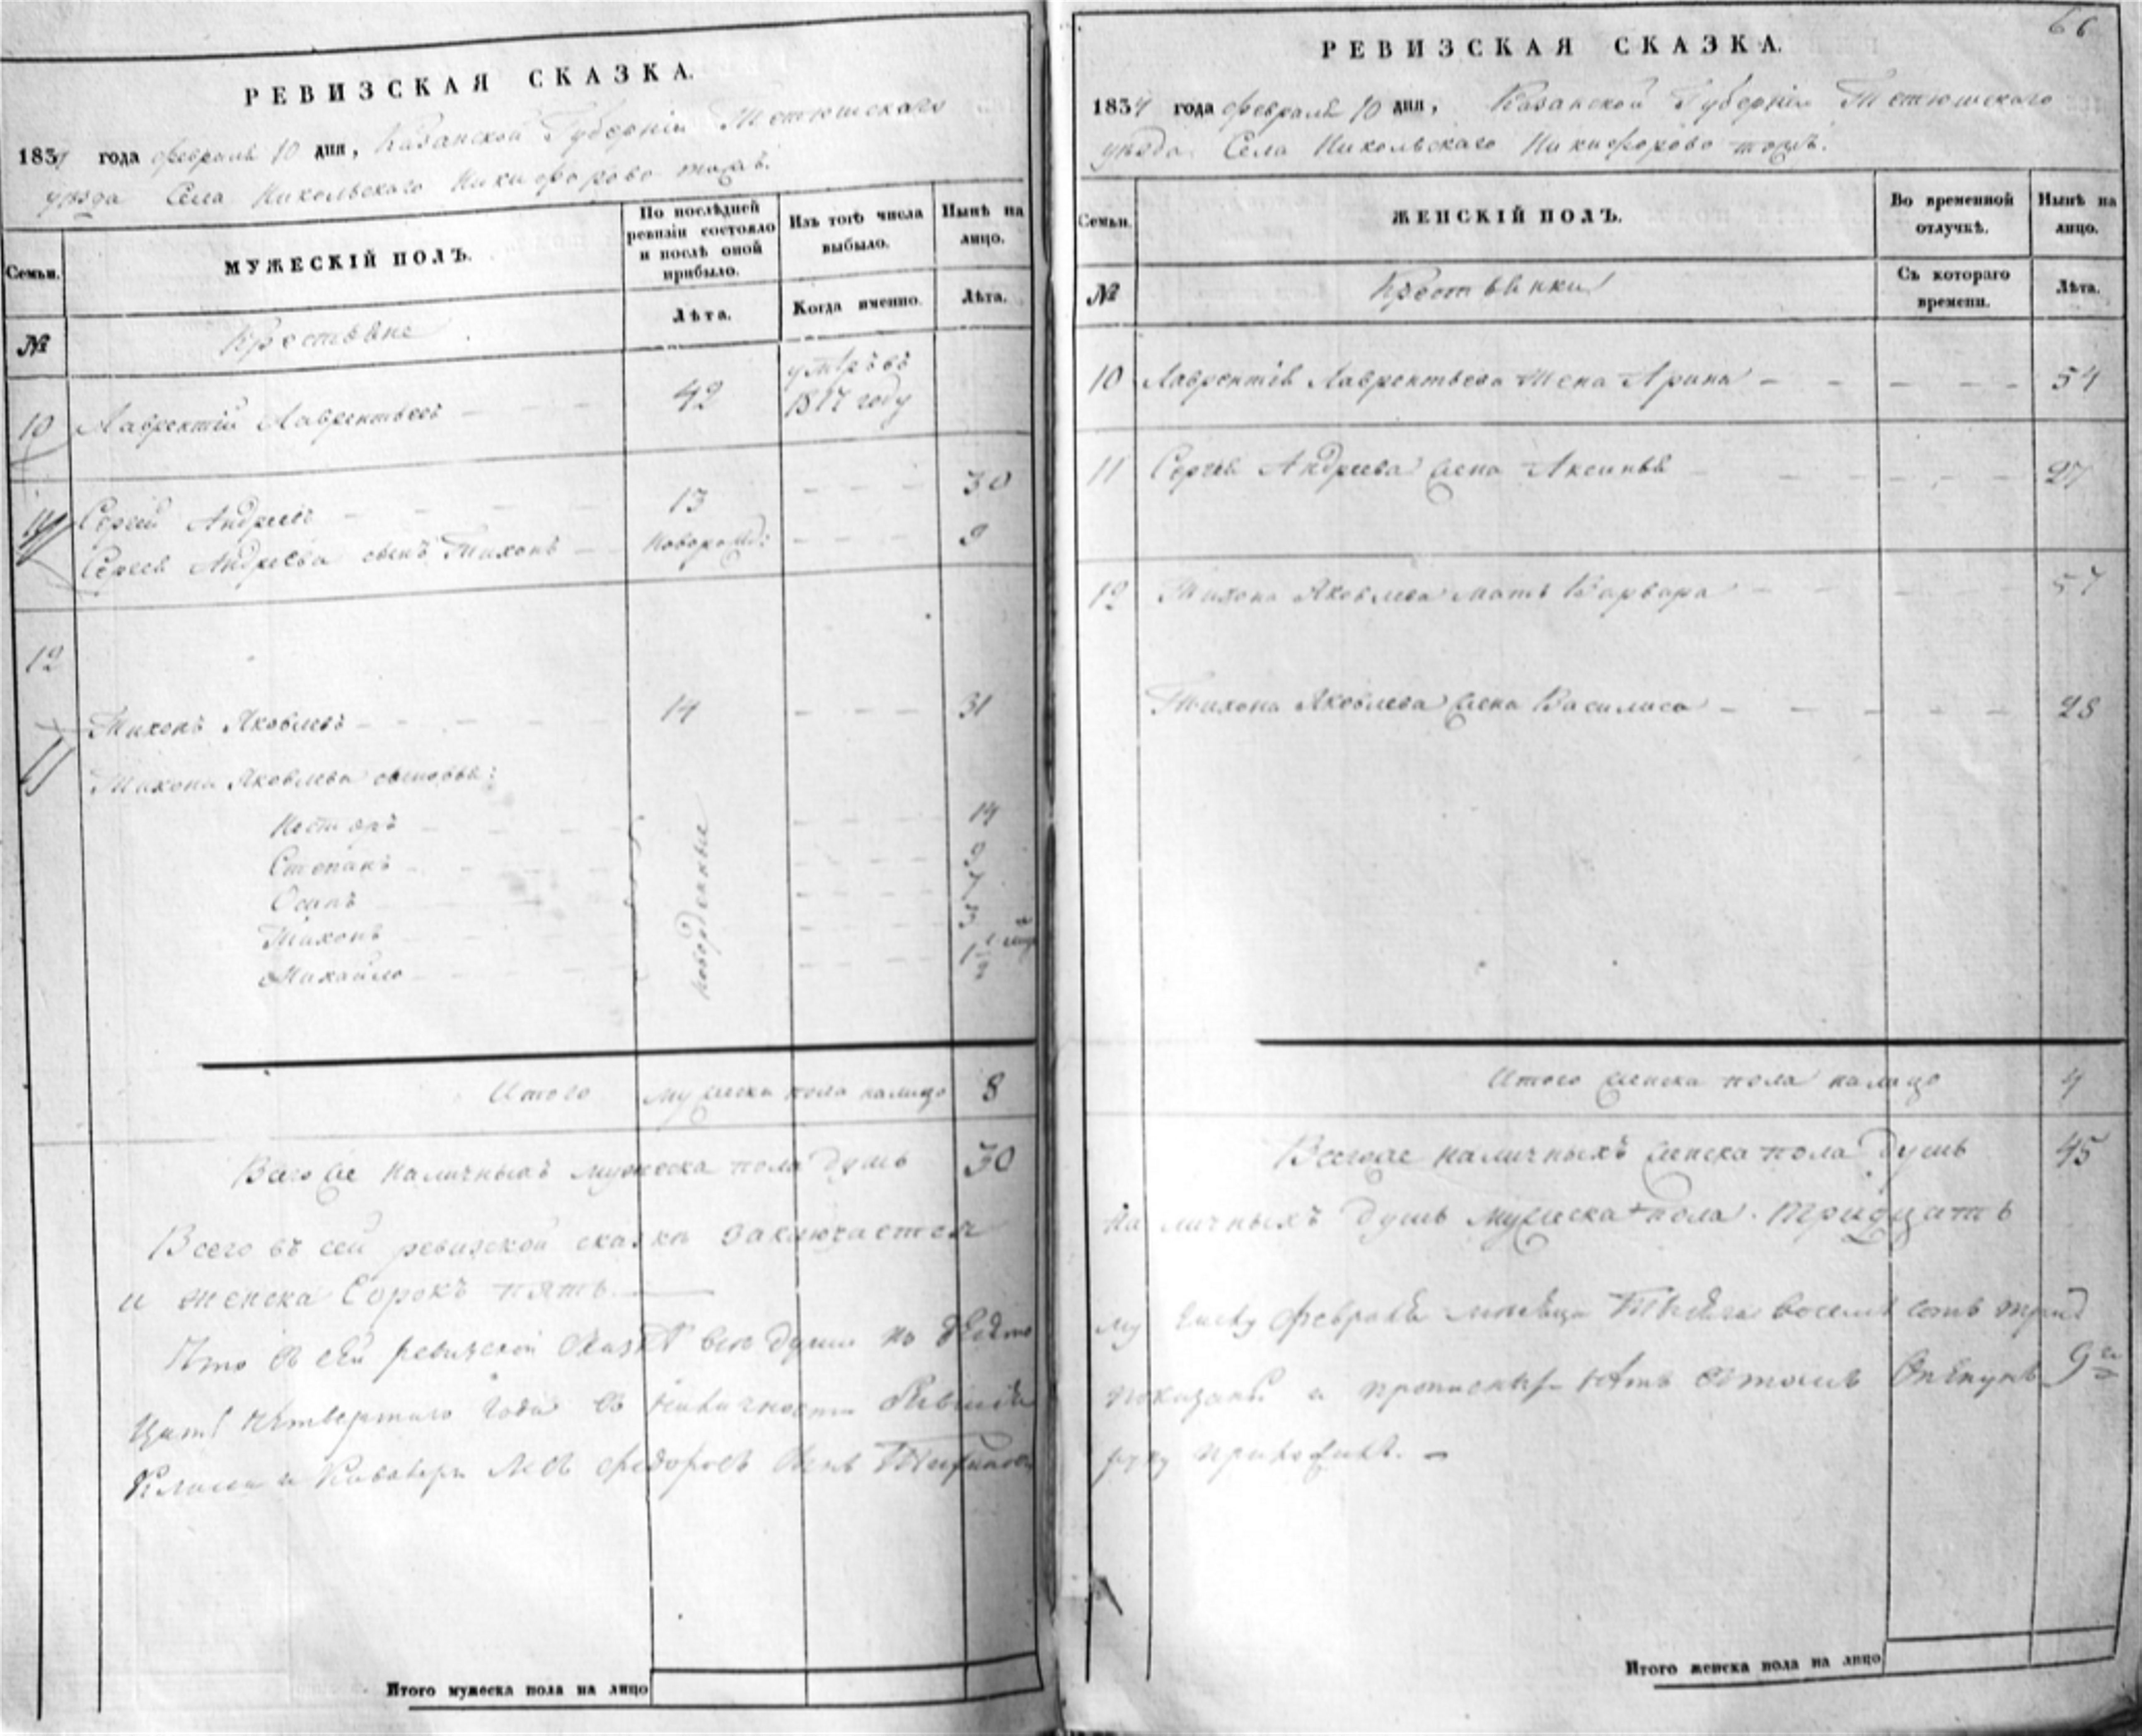 РЕВИЗСКАЯ СКАЗКА.
1834 года февраля 10 дня, Казанской Губерніи Тетюшскаго
уѣзда Села Никольскаго Никифорово тожъ.
Семьи.
МУЖЕСКІЙ ПОЛЪ.
По послѣдней ревизіи состояло и послѣ оной прибыло.
Изъ того числа выбыло.
Нынѣ на лицо.
№
Крестьяне
Лѣта.
Когда именно.
Лѣта.
10 Лаврентій Лаврентьевъ 42 умеръ въ 1817 году
11 Сергей Андреевъ 13 30
Сергея Андреева сынъ Тихонъ новорожд: 9
12
Тихонъ Яковлевъ 14 31
Тихона Яковлева сыновья:
Несторъ 14
Степанъ 9
Осипъ
Тихонъ
Михайло
новорожденные
Итого мужеска пола налицо 8
Всего же наличныхъ мужеска пола душъ 30
Всего въ сей ревизской сказкѣ заключается
и женска Сорокъ пять
Что въ сей ревизской сказкѣ все души по
четвертаго года въ наличности
и Кавалеръ Левъ Федоровъ сынъ
Итого мужеска пола на лицо
66
РЕВИЗСКАЯ СКАЗКА.
1834 года февраля 10 дня, Казанской Губерніи Тетюшскаго
уѣзда Села Никольскаго Никифорово тожъ.
Семьи.
ЖЕНСКІЙ ПОЛЪ.
Во временной отлучкѣ.
Нынѣ на лицо.
№
Крестьянки
Съ котораго времени.
Лѣта.
10 Лаврентія Лаврентьева жена Арина 54
11 Сергея Андреева жена Аксинья 27
12 Тихона Яковлева мать Варвара 57
Тихона Яковлева жена Василиса 28
Итого женска пола налицо 4
Всегоже наличныхъ женска пола душъ 45
наличныхъ душъ мужеска пола тридцать
му числу февраля месяца Тысяча восемь сотъ трид
показаны и прописныхъ нѣтъ въ томъ
руку приложилъ.
Итого женска пола на лицо